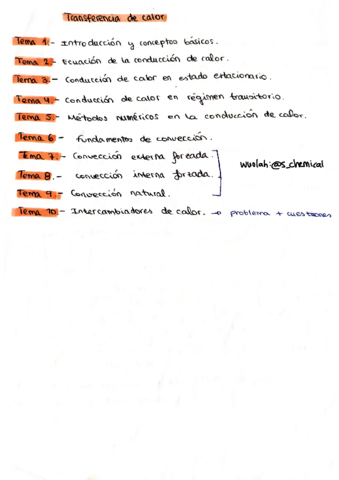 Transferencia de calor
Tema 1.- Introducción y conceptos básicos.
Tema 2.- Ecuación de la conducción de calor.
Tema 3.- Conducción de calor en estado estacionario.
Tema 4.- Conducción de calor en régimen transitorio.
Tema 5.- Métodos numéricos en la conducción de calor.
Tema 6.- Fundamentos de convección.
Tema 7.- Convección externa forzada.
Tema 8.- convección interna forzada.
wuolah:@s_chemical
Tema 9.- Convección natural.
Tema 10.- Intercambiadores de calor. → problema + cuestiones